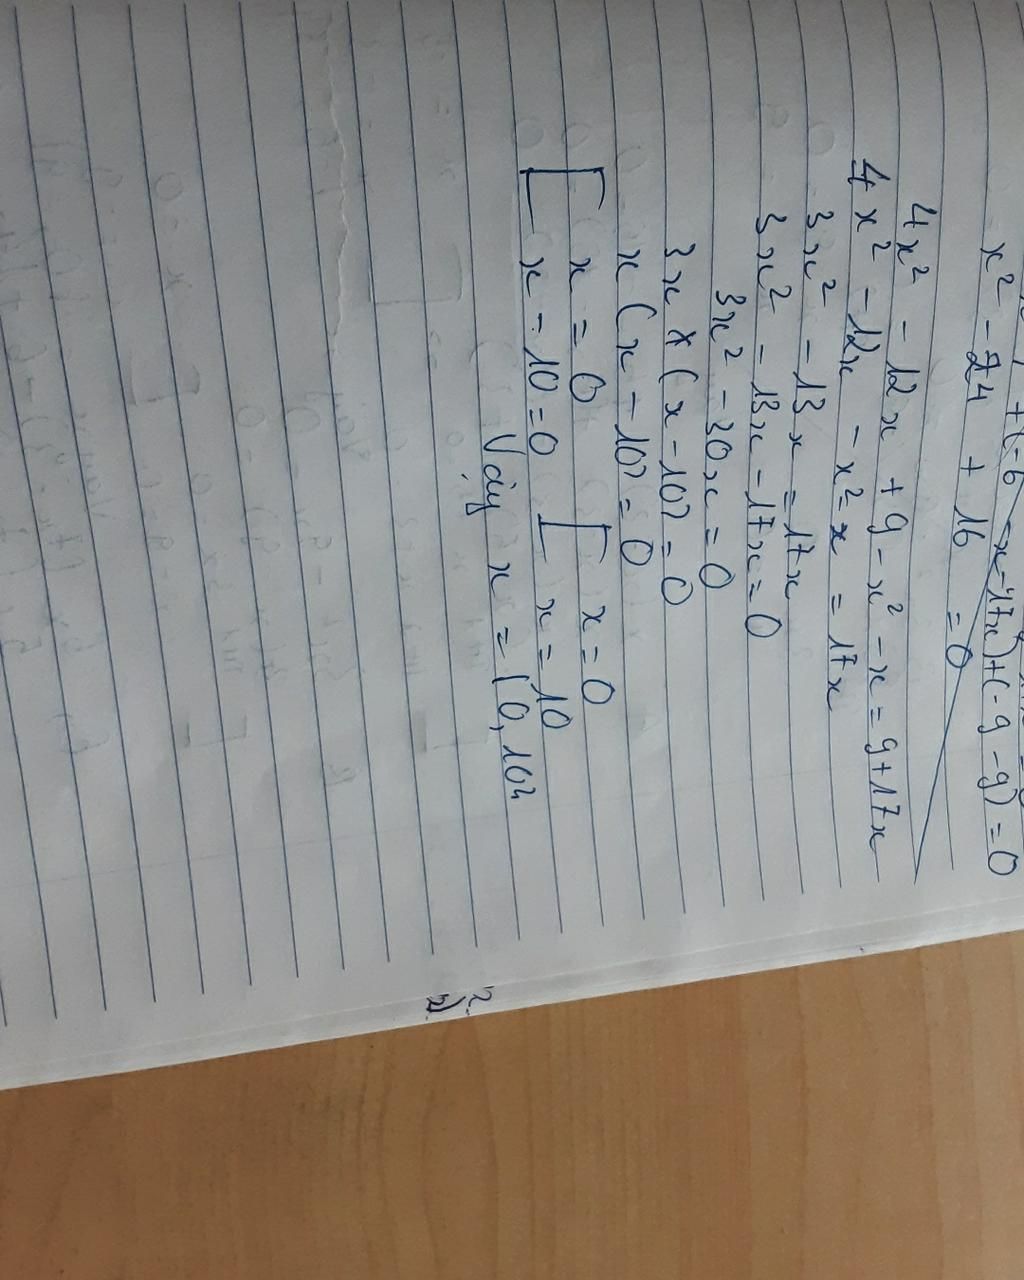 x² - 24 + 16 = 0
4x² - 12x + 9 - x² - x = 9 + 17x
4x² - 12x - x² = x = 17x
3x² - 13x = 17x
3x² - 13x - 17x = 0
3x² - 30x = 0
3x × (x - 10) = 0
x (x - 10) = 0
[ x = 0 [ x = 0
x - 10 = 0 x = 10
Vậy x = {0, 10}